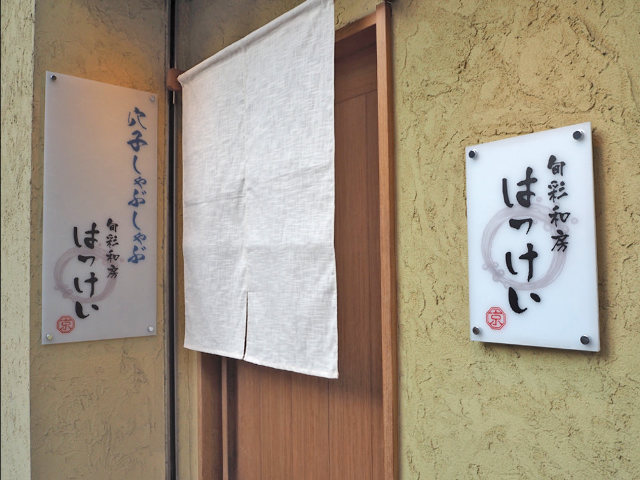 穴子しゃぶしゃぶ
旬彩和房
はっけい
京
旬彩和房
はっけい
京